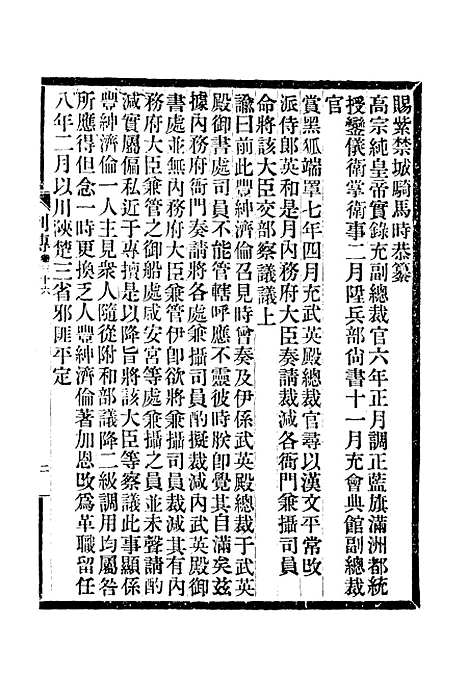 賜紫禁城騎馬時恭纂
高宗純皇帝實錄充副總裁官六年正月調正藍旗滿洲都統
授鑾儀衛掌衛事二月陞兵部尚書十一月充會典館副總裁
官
賞黑狐端罩七年四月充武英殿總裁官尋以漢文平常改
派侍郎英和是月內務府大臣奏請裁減各衙門兼攝司員
命將該大臣交部察議議上
諭曰前此豐紳濟倫召見時曾奏及伊係武英殿總裁于武英
殿御書處司員不能管轄呼應不靈彼時朕卽覺其自滿矣茲
據內務府衙門奏請將各處兼攝司員酌擬裁減內武英殿御
書處並無內務府大臣兼管伊卽欲將兼攝司員裁減其有內
務府大臣兼管之御船處咸安宮等處兼攝之員並未聲請酌
減實屬偏私近于專擅是以降旨將該大臣等察議此事顯係
豐紳濟倫一人主見衆人隨從附和部議降二級調用均屬咎
所應得但念一時更換乏人豐紳濟倫著加恩改爲革職留任
八年二月以川陝楚三省邪匪平定
列傳 卷三十六
二